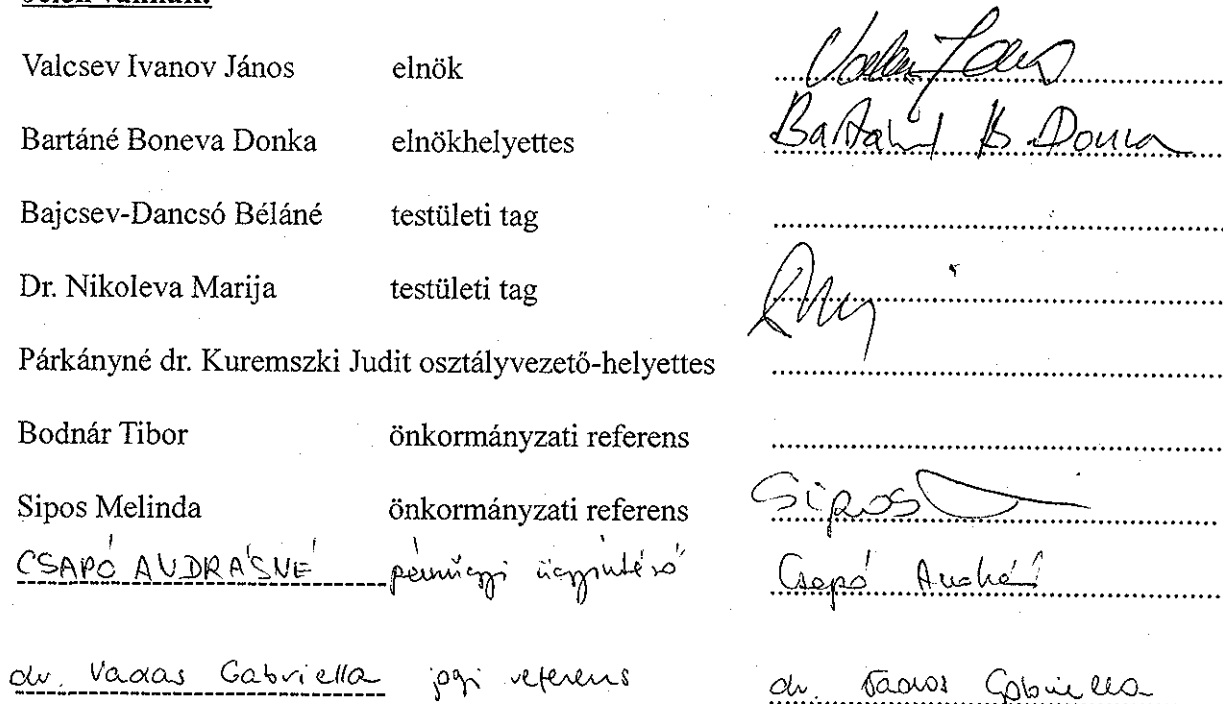 Valcsev Ivanov János elnök
Bartáné Boneva Donka elnökhelyettes Bartáné B. Donka
Bajcsev-Dancsó Béláné testületi tag
Dr. Nikoleva Marija testületi tag
Párkányné dr. Kuremszki Judit osztályvezető-helyettes
Bodnár Tibor önkormányzati referens
Sipos Melinda önkormányzati referens Sipos
CSAPÓ ANDRÁSNÉ pénzügyi ügyintéző Csapó Andrásné
dr. Vadas Gabriella jogi referens dr. Vadas Gabriella